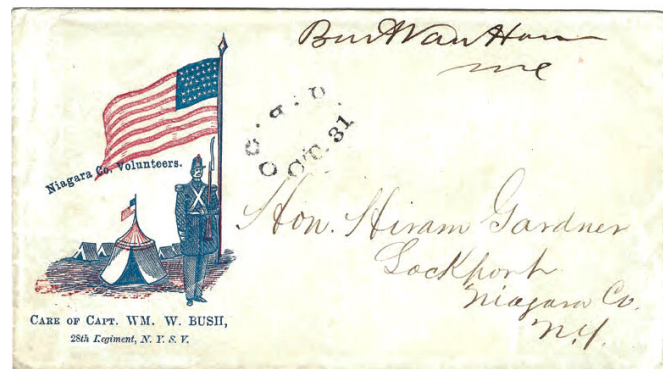 Burt Van Horn
mc
O. P. D.
OCT. 31
Niagara Co. Volunteers.
Hon. Hiram Gardner
Lockport
Niagara Co.
N.Y.
CARE OF CAPT. WM. W. BUSH,
28th Regiment, N. Y. S. V.